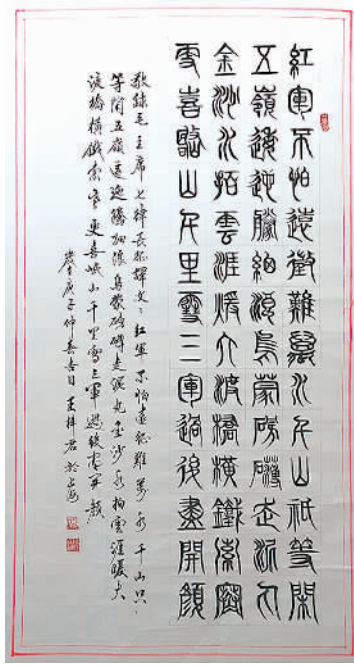 紅軍不怕遠徵難萬水千山祇等閑
五嶺逶迤騰細浪烏蒙磅礴走泥丸
金沙水拍雲涯煖大渡橋橫鐵索寒
更喜岷山千里雪三軍過後盡開顏
敬錄毛主席七律長征釋文：紅軍不怕遠征難萬水千山只
等閑五嶺逶迤騰細浪烏蒙磅礴走泥丸金沙水拍雲涯暖大
渡橋橫鐵索寒更喜岷山千里雪三軍過後盡开顏
歲在庚子仲春吉日王梓君於上海